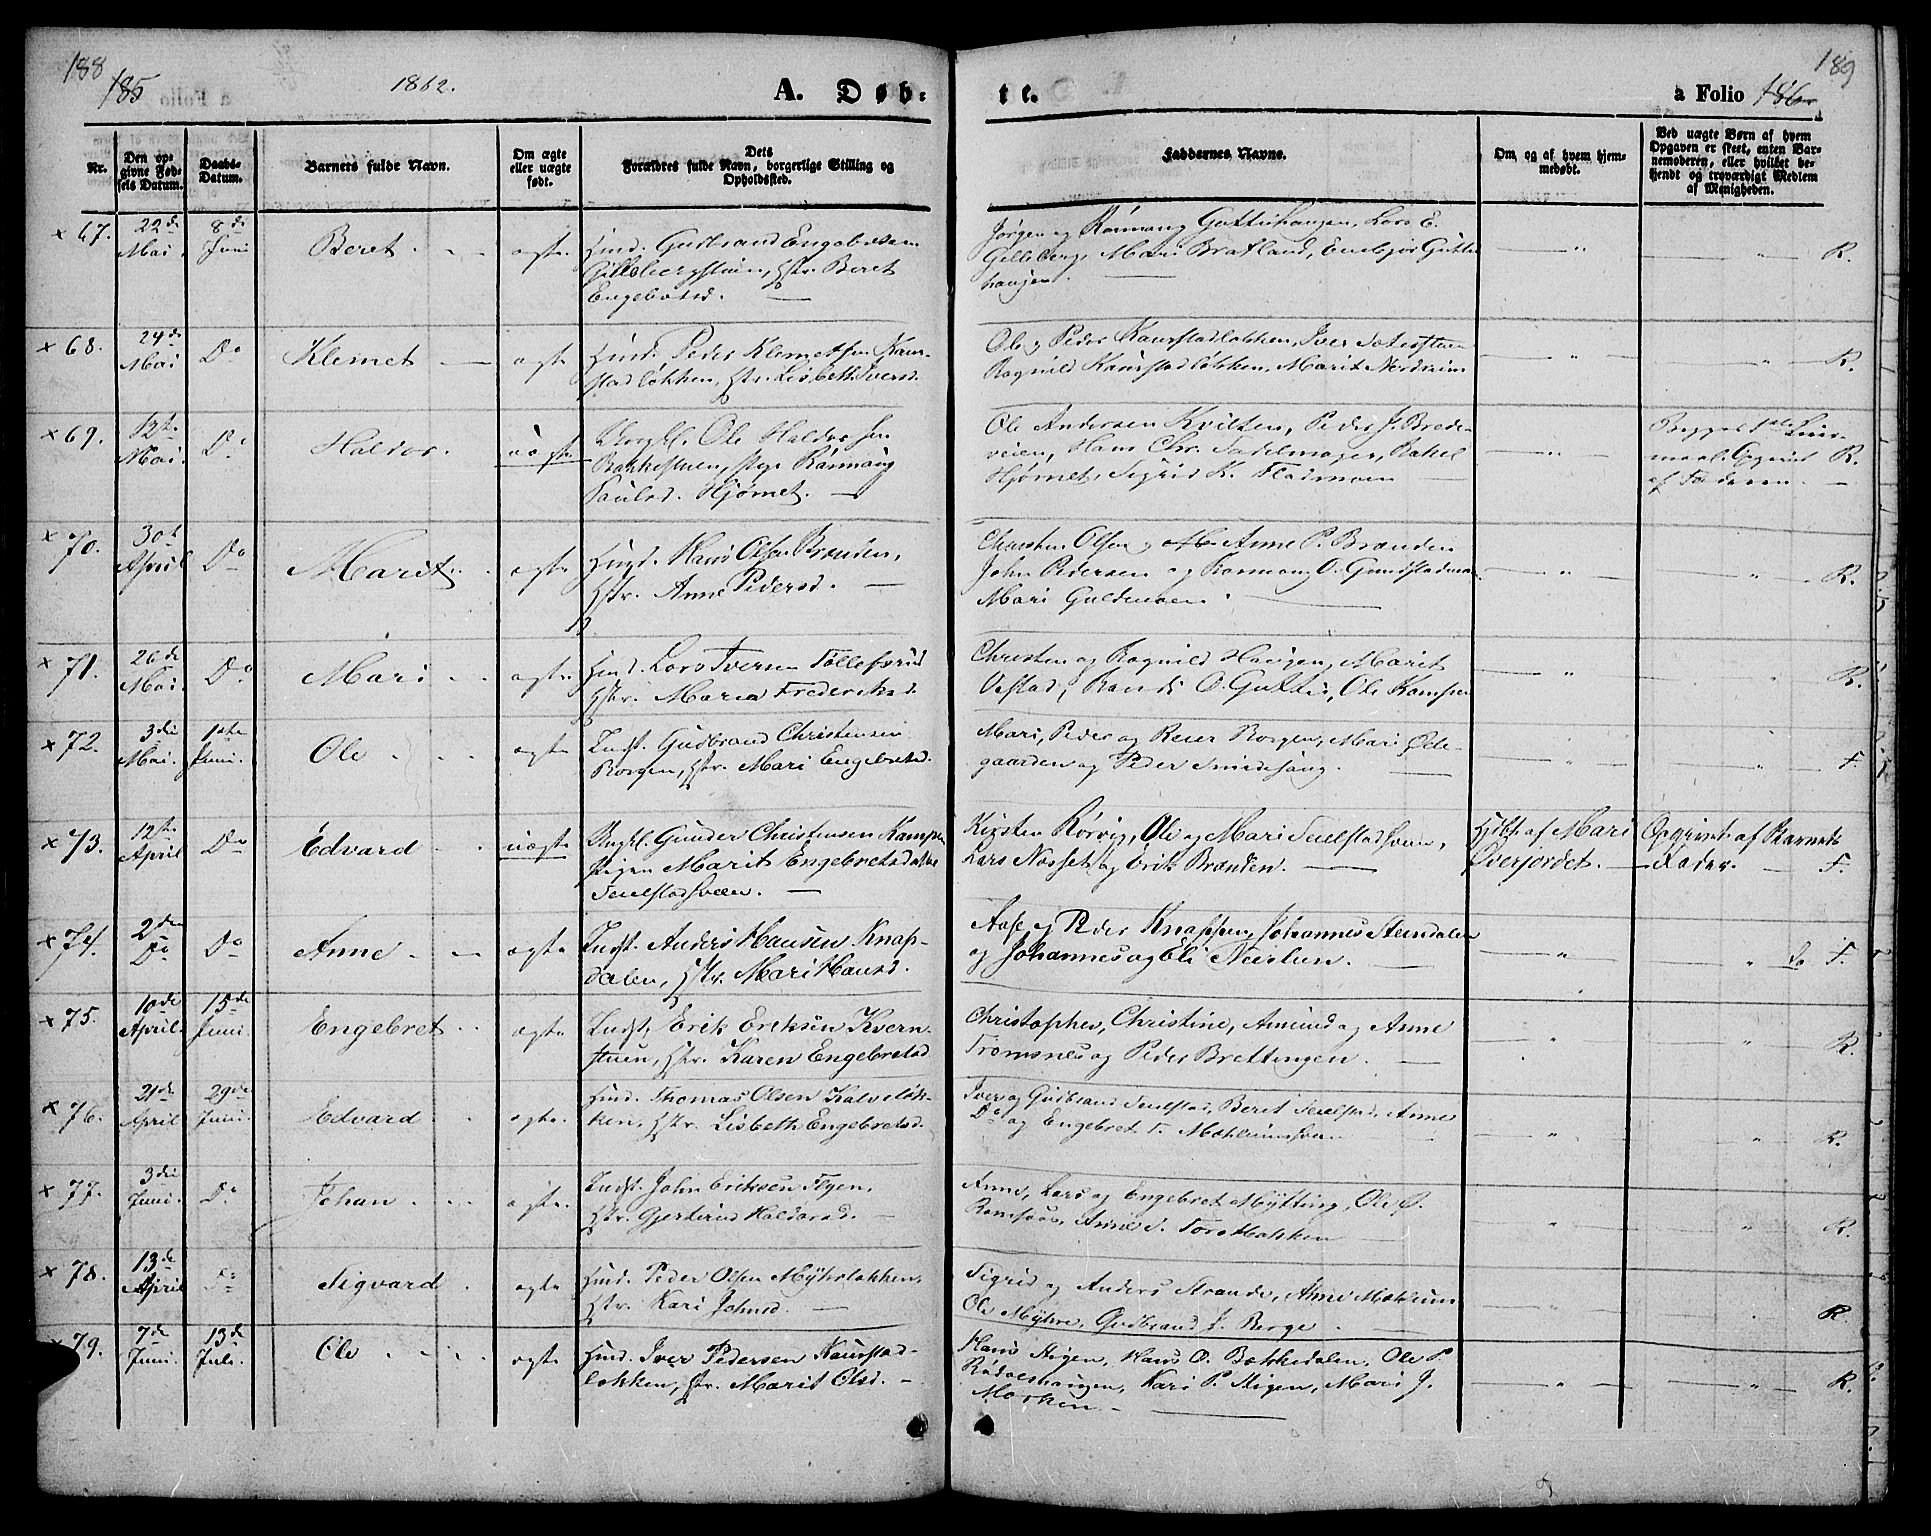 188
185
1862.
A. Døb-
te.
a Folio 186
189
Nr.
Den op-
givne Fød-
sels Datum.
Daabs-
Datum.
Barnets fulde Navn.
Om ægte
eller uægte
født.
Dets
Forældres fulde Navn, borgerlige Stilling og
Opholdssted.
Faddernes Navne.
Om, og af hvem hjem-
medøbt.
Ved uægte Børn af hvem
Opgaven er skeet, enten Bar-
nemoderen, eller hvilket be-
kjendt og troværdigt Medlem
af Menigheden.
x 67. 22de Mai. 8de Juni Beret ægte
Huusm. Gudbrand Engebretsen
Gillebergstuen, Hstr. Beret
Engebretsd.
Jørgen og Rønnaug Guttuhaugen, Lars E.
Gilleberg, Mari Bratland, Embjør Guttu-
haugen.
R.
x 68. 24de Mai Do Klemet ægte
Huusm. Peder Klemetsen Kaur-
stadløkken, Hstr. Lisbeth Iversd.
Ole og Peder Kaurstadløkken, Iver
Ragnild Kaurstadløkken, Marit Nordrum
R.
x 69. 12te Mai. Do Haldor. uægte
Ungkl. Ole Haldorsen
Bakkestuen, Pige Rønnaug
Paulsd. Hjørnet.
Ole Andersen Kvilten, Peder J. Brede-
veien, Hans Chr. Sadelmager, Rakel
Hjørnet, Sigrid K. Fladmoen
Begges Leier-
maal. Opgivet
af Faderen.
R.
x 70. 30te April Do Marit. ægte
Huusm. Hans Olsen Brænden,
Hstr. Anne Pedersd.
Christen Olsen og Anne P. Brænden
John Pedersen og Rønnaug O. Gundstadmoen
Mari Guldmoen.
R.
x 71. 26de Mai. Do Mari ægte
Huusm. Lars Iversen Tollefsrud
Hstr. Maria Frederiksd.
Christen og Ragnild Haugen, Marit
Vestad, Randi O. Guttu, Ole Kampen
R.
x 72. 3die Mai. 1ste Juni. Ole ægte
Indst. Gudbrand Christensen
Borgen, Hstr. Mari Engebretsd.
Mari, Peder og Reier Borgen, Mari Øde-
gaarden og Peder Smidehaug.
F.
x 73. 12te April Do Edvard uægte
Ungkl. Gunder Christensen Kampen
Pigen Marit Engebretsdatter
Teielstadsveen.
Kirsten Rörvig, Ole og Mari Teielstadsveen,
Lars Nosset og Erik Brænden.
Hjdbt. af Mari
Øverjordet.
Opgivet af Barnets
Fader.
F.
x 74. 2den Do Do Anne ægte
Indst. Anders Hansen Knap-
dalen, Hstr. Mari Hansd.
Aase og Peder Knappen, Johannes Steindalen
og Johannes og Eli Neerlien.
F.
x 75. 10de April. 15de Juni. Engebret ægte
Indst. Erik Eriksen Kvern-
stuen, Hstr. Karen Engebretsd
Christopher, Christine, Amund og Anne
Tromsnes og Peder Brettingen.
R.
x 76. 21de April 29de Juni. Edvard ægte.
Huusm. Thomas Olsen Kalveløk-
ken, Hstr. Lisbeth Engebretsd.
Iver og Gudbrand Teielstad, Beret Teielstad, Anne
Do og Engebret T. Mæhlumsveen
R.
x 77. 3die Juni. Do Johan ægte.
Indst. John Eriksen Flyen,
Hstr. Gjertrud Haldorsd.
Anne, Lars og Engebret Mytting, Ole O.
Ramsaas, Anne S. Torstbakken
R.
x 78. 13de April Do Sigvard ægte
Huusm. Peder Olsen Myhrløkken,
Hstr. Kari Johnsd.
Sigrid og Anders Strande, Anne Mæhlum
Ole Myhre, Gudbrand J. Berge.
R.
x 79. 7de Juni. 13de Juli. Ole ægte
Huusm. Iver Pedersen Kaurstad-
løkken, Hstr. Marit Olsd.
Hans Stigen, Hans O. Bækkedalen, Ole P.
Rudolshaugen, Kari P. Stigen, Mari J.
Morken
R.